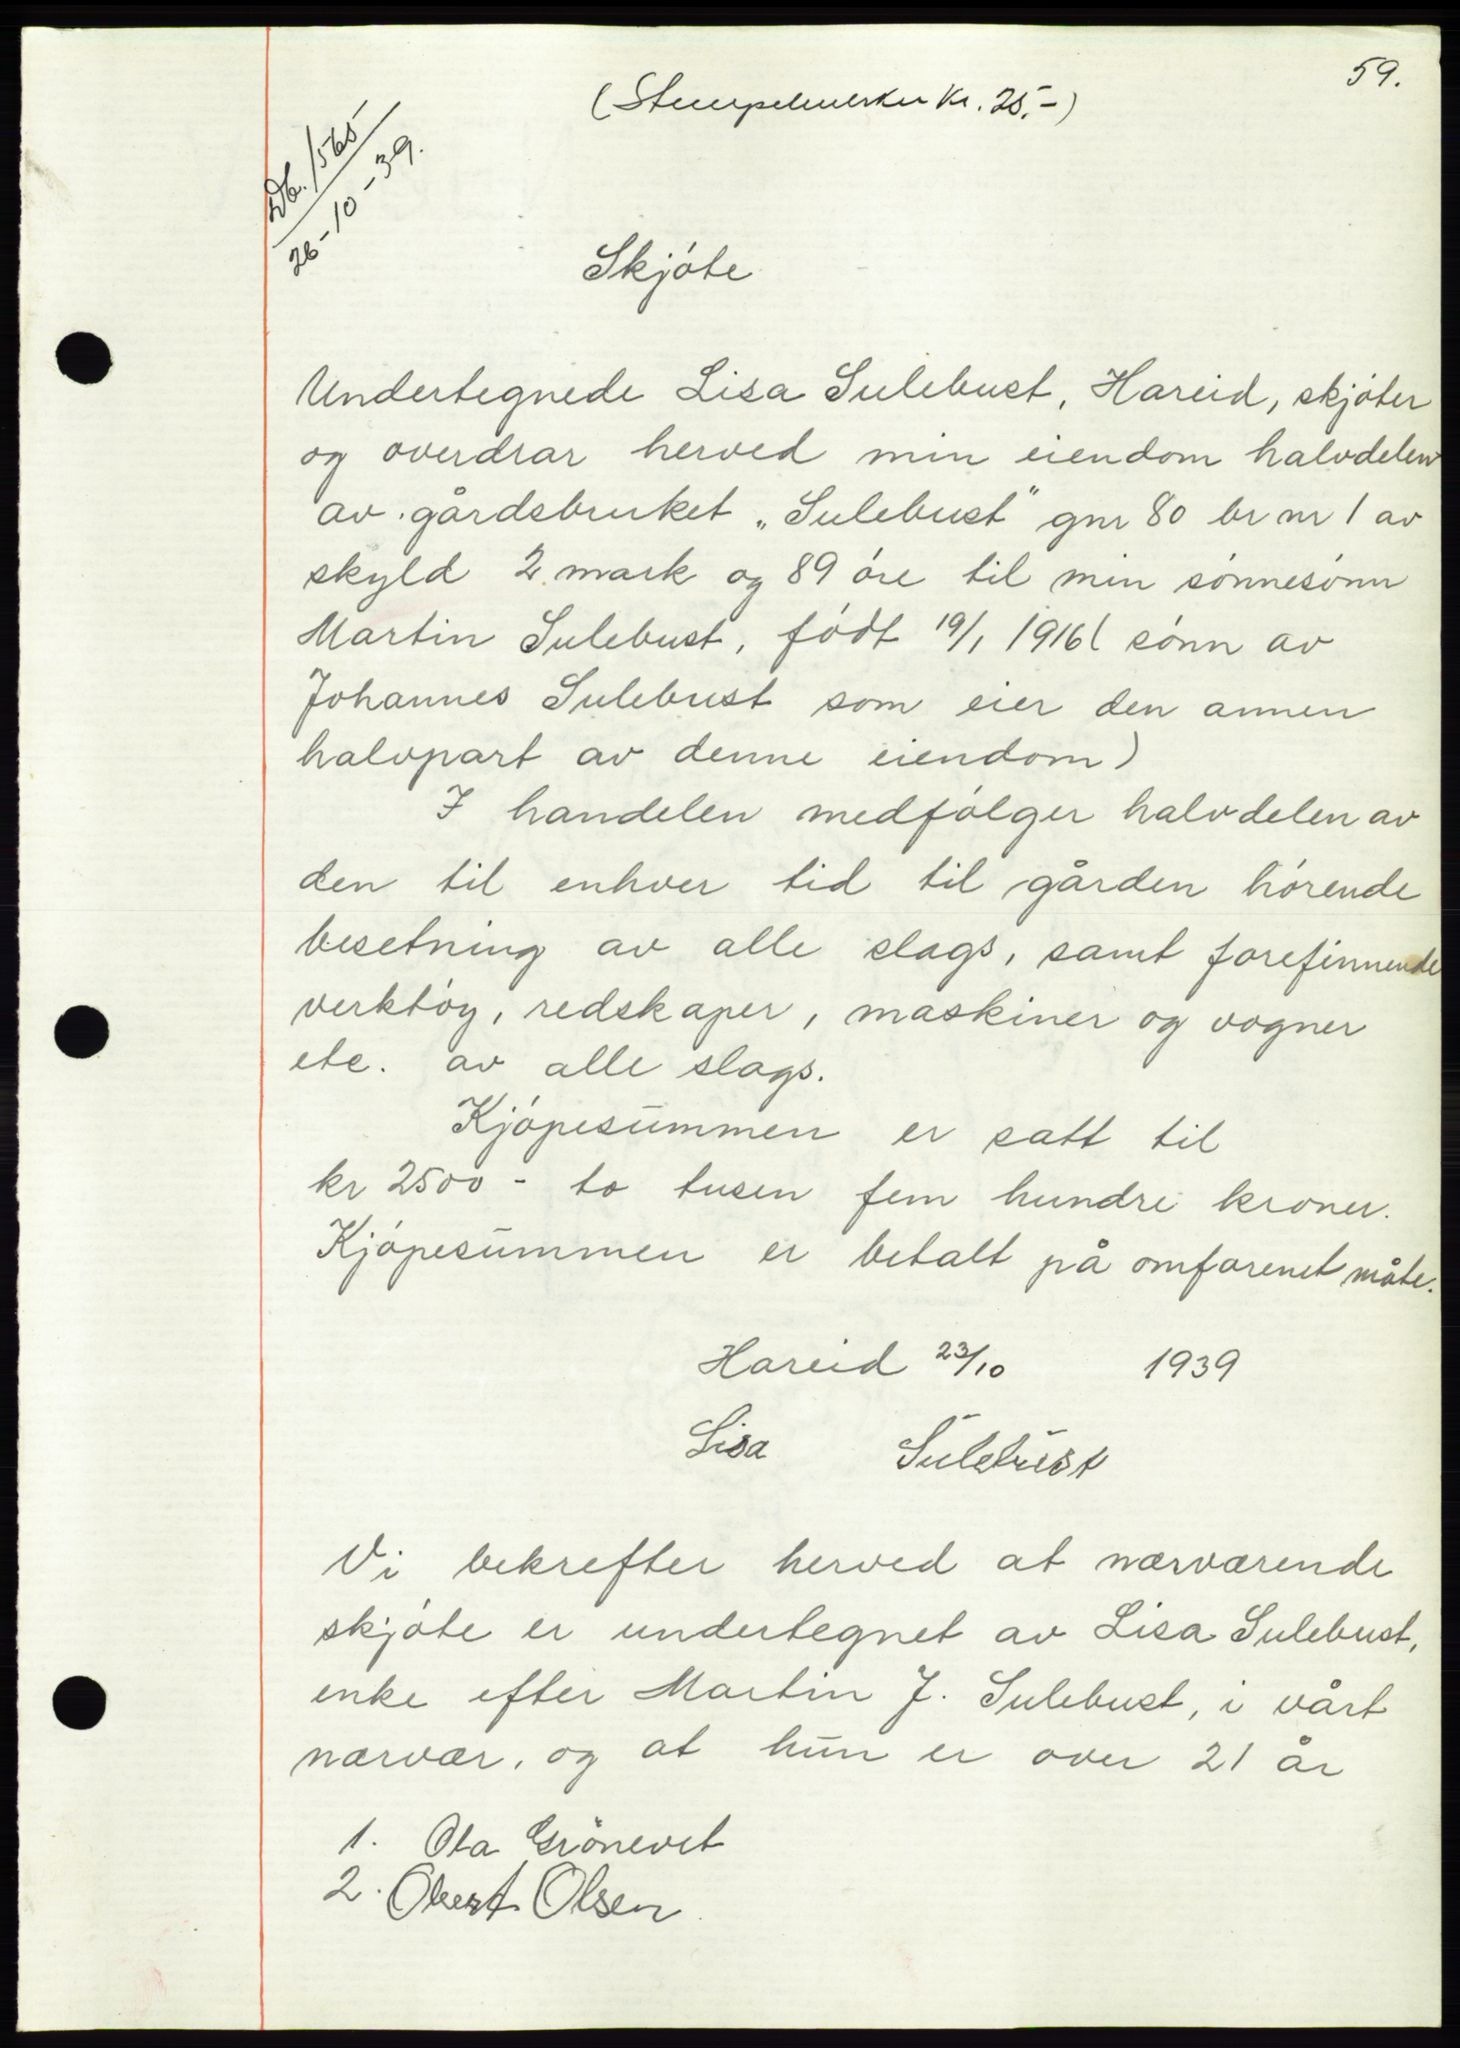 59.
(Stempelmerker kr. 25,-)
Db. 1565
26-10-39.
Skjóte
Undertegnede Lisa Sulebust, Hareid, skjóter
og overdrar herved min eiendom halvdelen
av gårdsbruket „Sulebust" gnr 80 br nr 1 av
skyld 2 mark og 89 óre til min sónnesónn
Martin Sulebust, fódt 19/1 1916 ( sónn av
Johannes Sulebust som eier den annen
halvpart av denne eiendom)
I handelen medfólger halvdelen av
den til enhver tid til gården hórende
besetning av alle slags, samt forefinnende
verktóy, redskaper, maskiner og vogner
etc. av alle slags.
Kjópesummen er satt til
kr 2500 - to tusen fem hundre kroner.
Kjópesummen er betalt på omforenet måte.
Hareid 23/10 1939
Lisa Sulebust
Vi bekrefter herved at nærværende
skjóte er undertegnet av Lisa Sulebust,
enke efter Martin J. Sulebust, i vårt
nærvær, og at hun er over 21 år
1. Ola Grönevet
2. Olsen